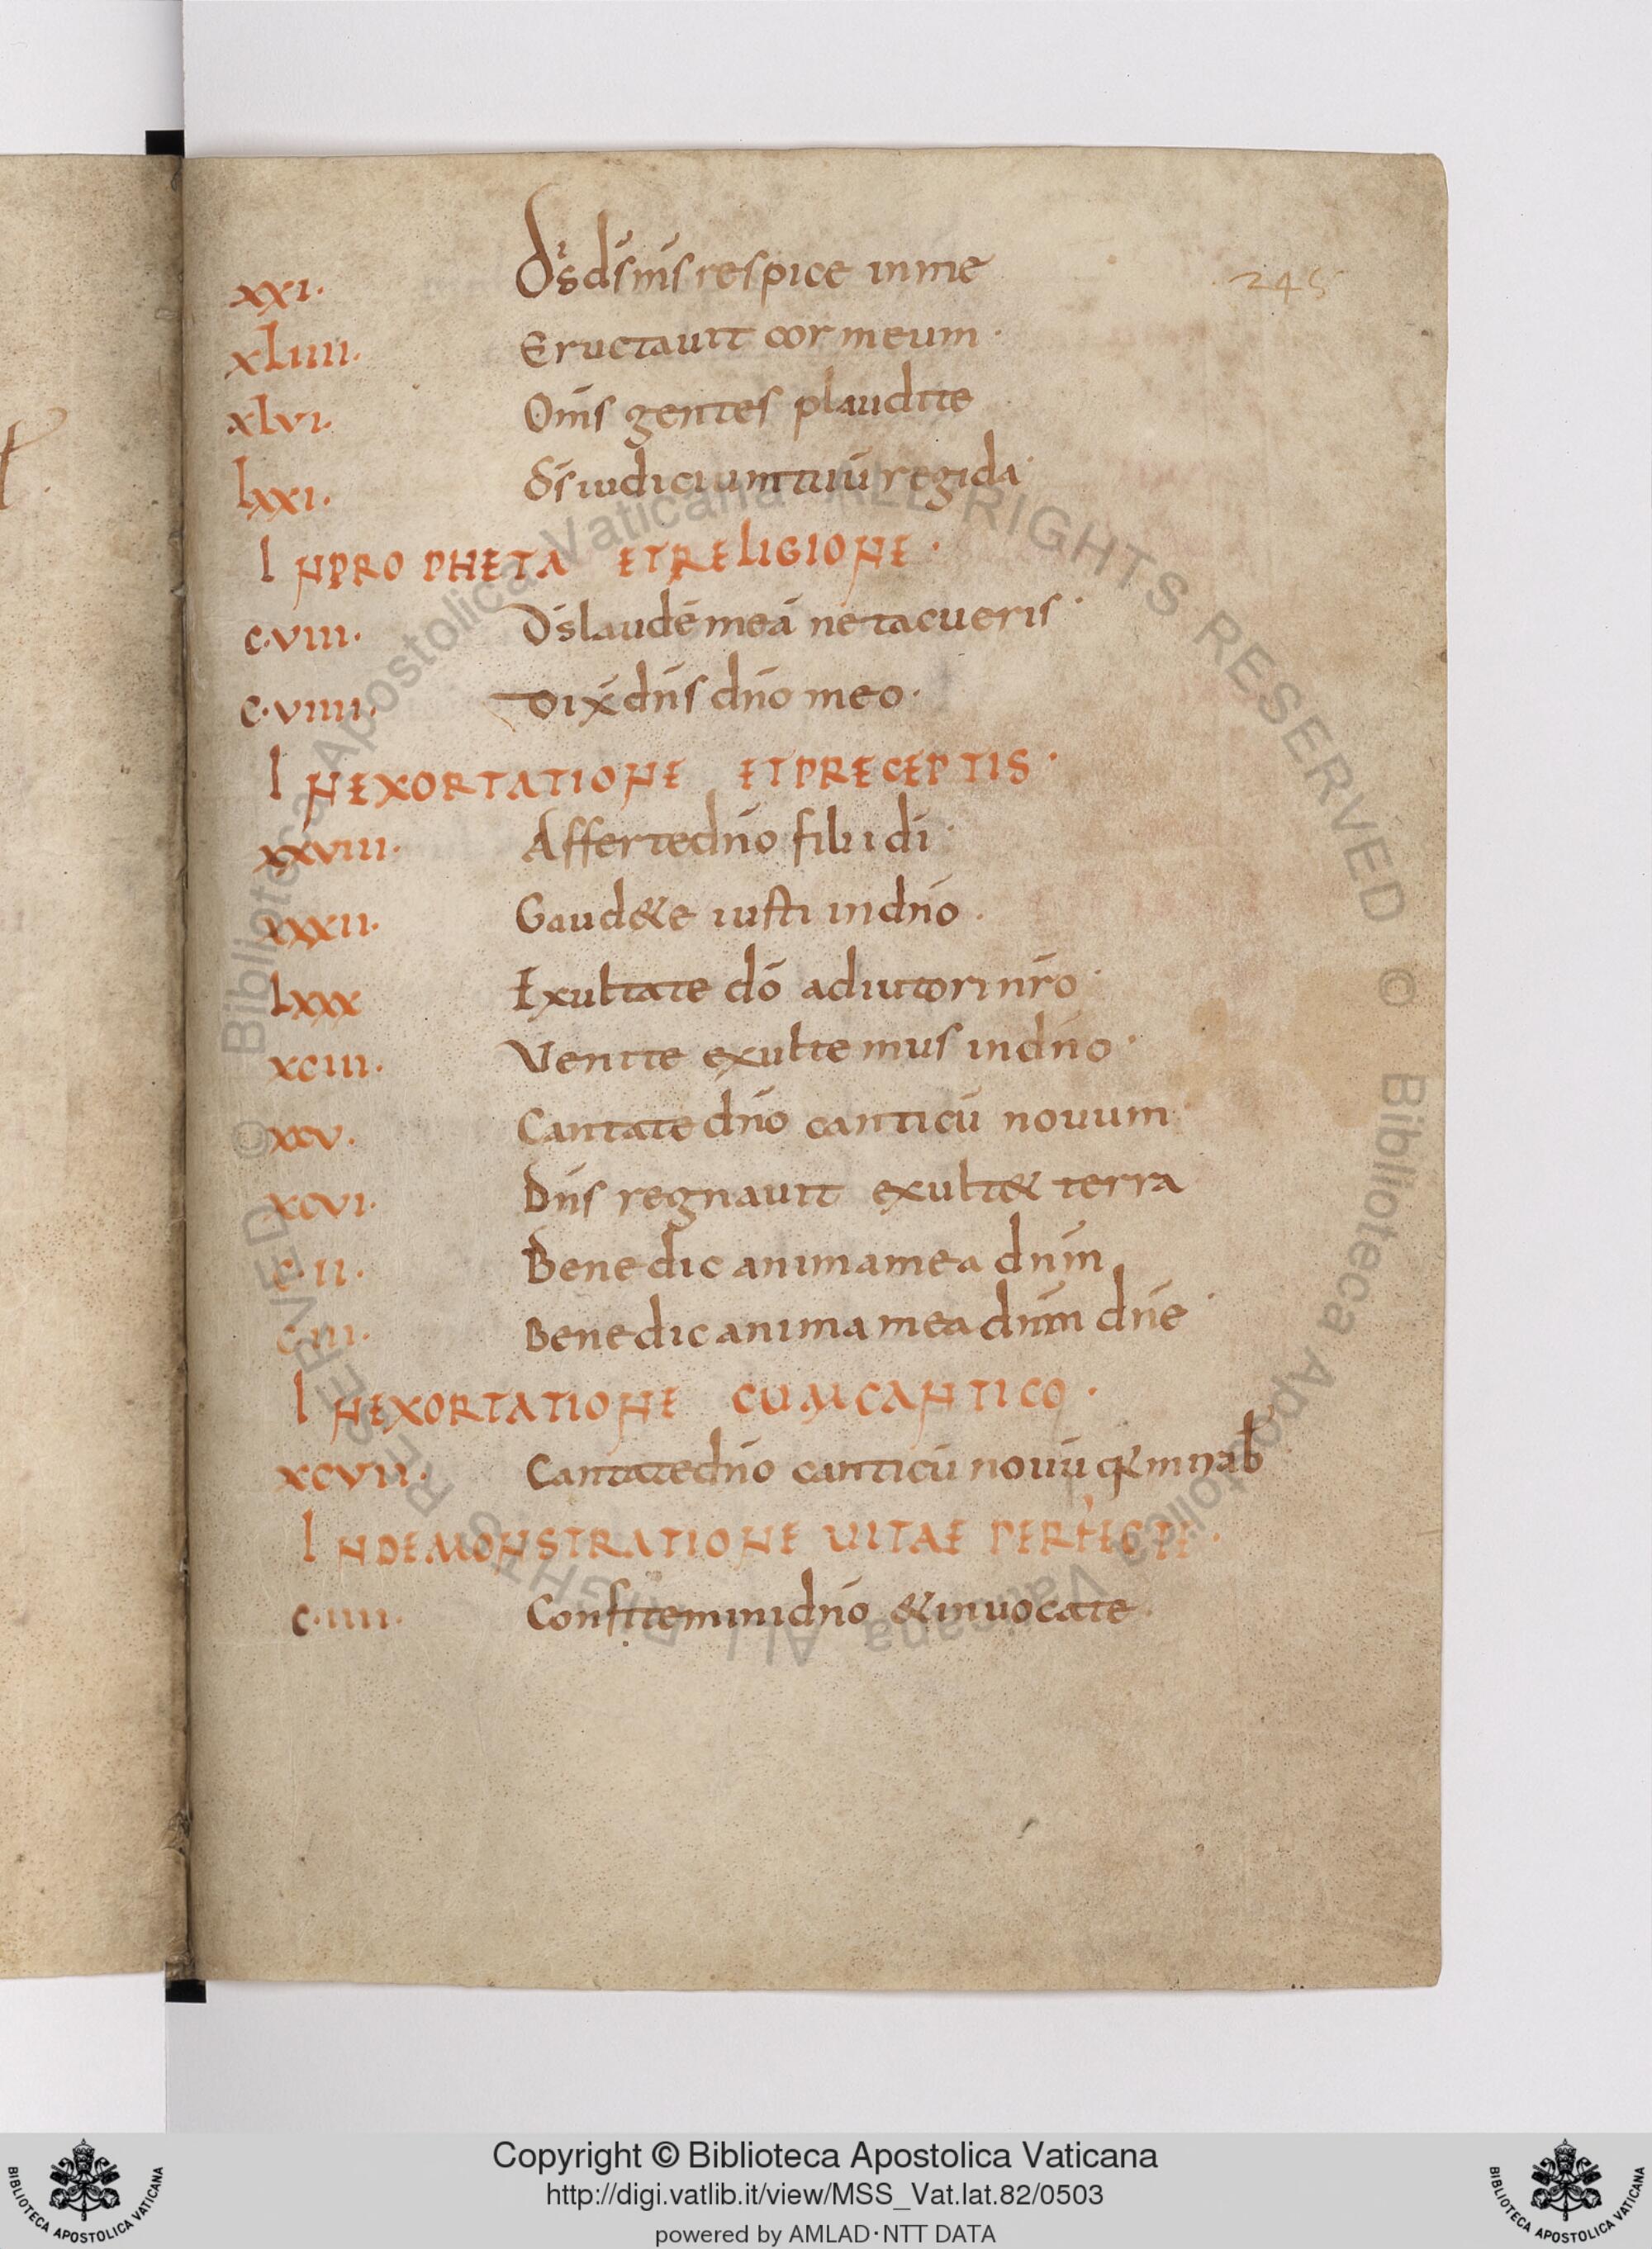 245
xxi. Ds ds ms respice in me
xLiiii. Eructauit cor meum.
xLvi. Om̄s gentes plaudite
Lxxi. Ds̄ iudicium tuū regi da
IN PROPHETA ET RELIGIONE.
c.viii. Ds̄ laudē meā ne tacueris.
c.viiii. Dix̄ dn̄s dn̄o meo.
IN EXORTATIONE ET PRECEPTIS.
xxviii. Afferte dn̄o filii dī.
xxxii. Gaud&e iusti in dn̄o.
Lxxx Exultate dō adiutori nr̄o.
xciiii. Venite exultemus in dn̄o.
xcv. Cantate dn̄o canticū nouum.
xcvi. Dn̄s regnauit exult& terra
c.ii. Benedic anima mea dnm̄
c.iii. Benedic anima mea dnm̄ dn̄e.
IN EXORTATIONE CUM CANTICO.
xcvii. Cantate dn̄o canticū nouū q& mirab
IN DEMONSTRATIONE UITAE PERFECTE.
c.iiii. Confitemini dn̄o & inuocate.
© Biblioteca Apostolica Vaticana ALL RIGHTS RESERVED © Biblioteca Apostolica Vaticana ALL RIGHTS RESERVED
Copyright © Biblioteca Apostolica Vaticana
http://digi.vatlib.it/view/MSS_Vat.lat.82/0503
powered by AMLAD·NTT DATA
BIBLIOTECA APOSTOLICA VATICANA
BIBLIOTECA APOSTOLICA VATICANA